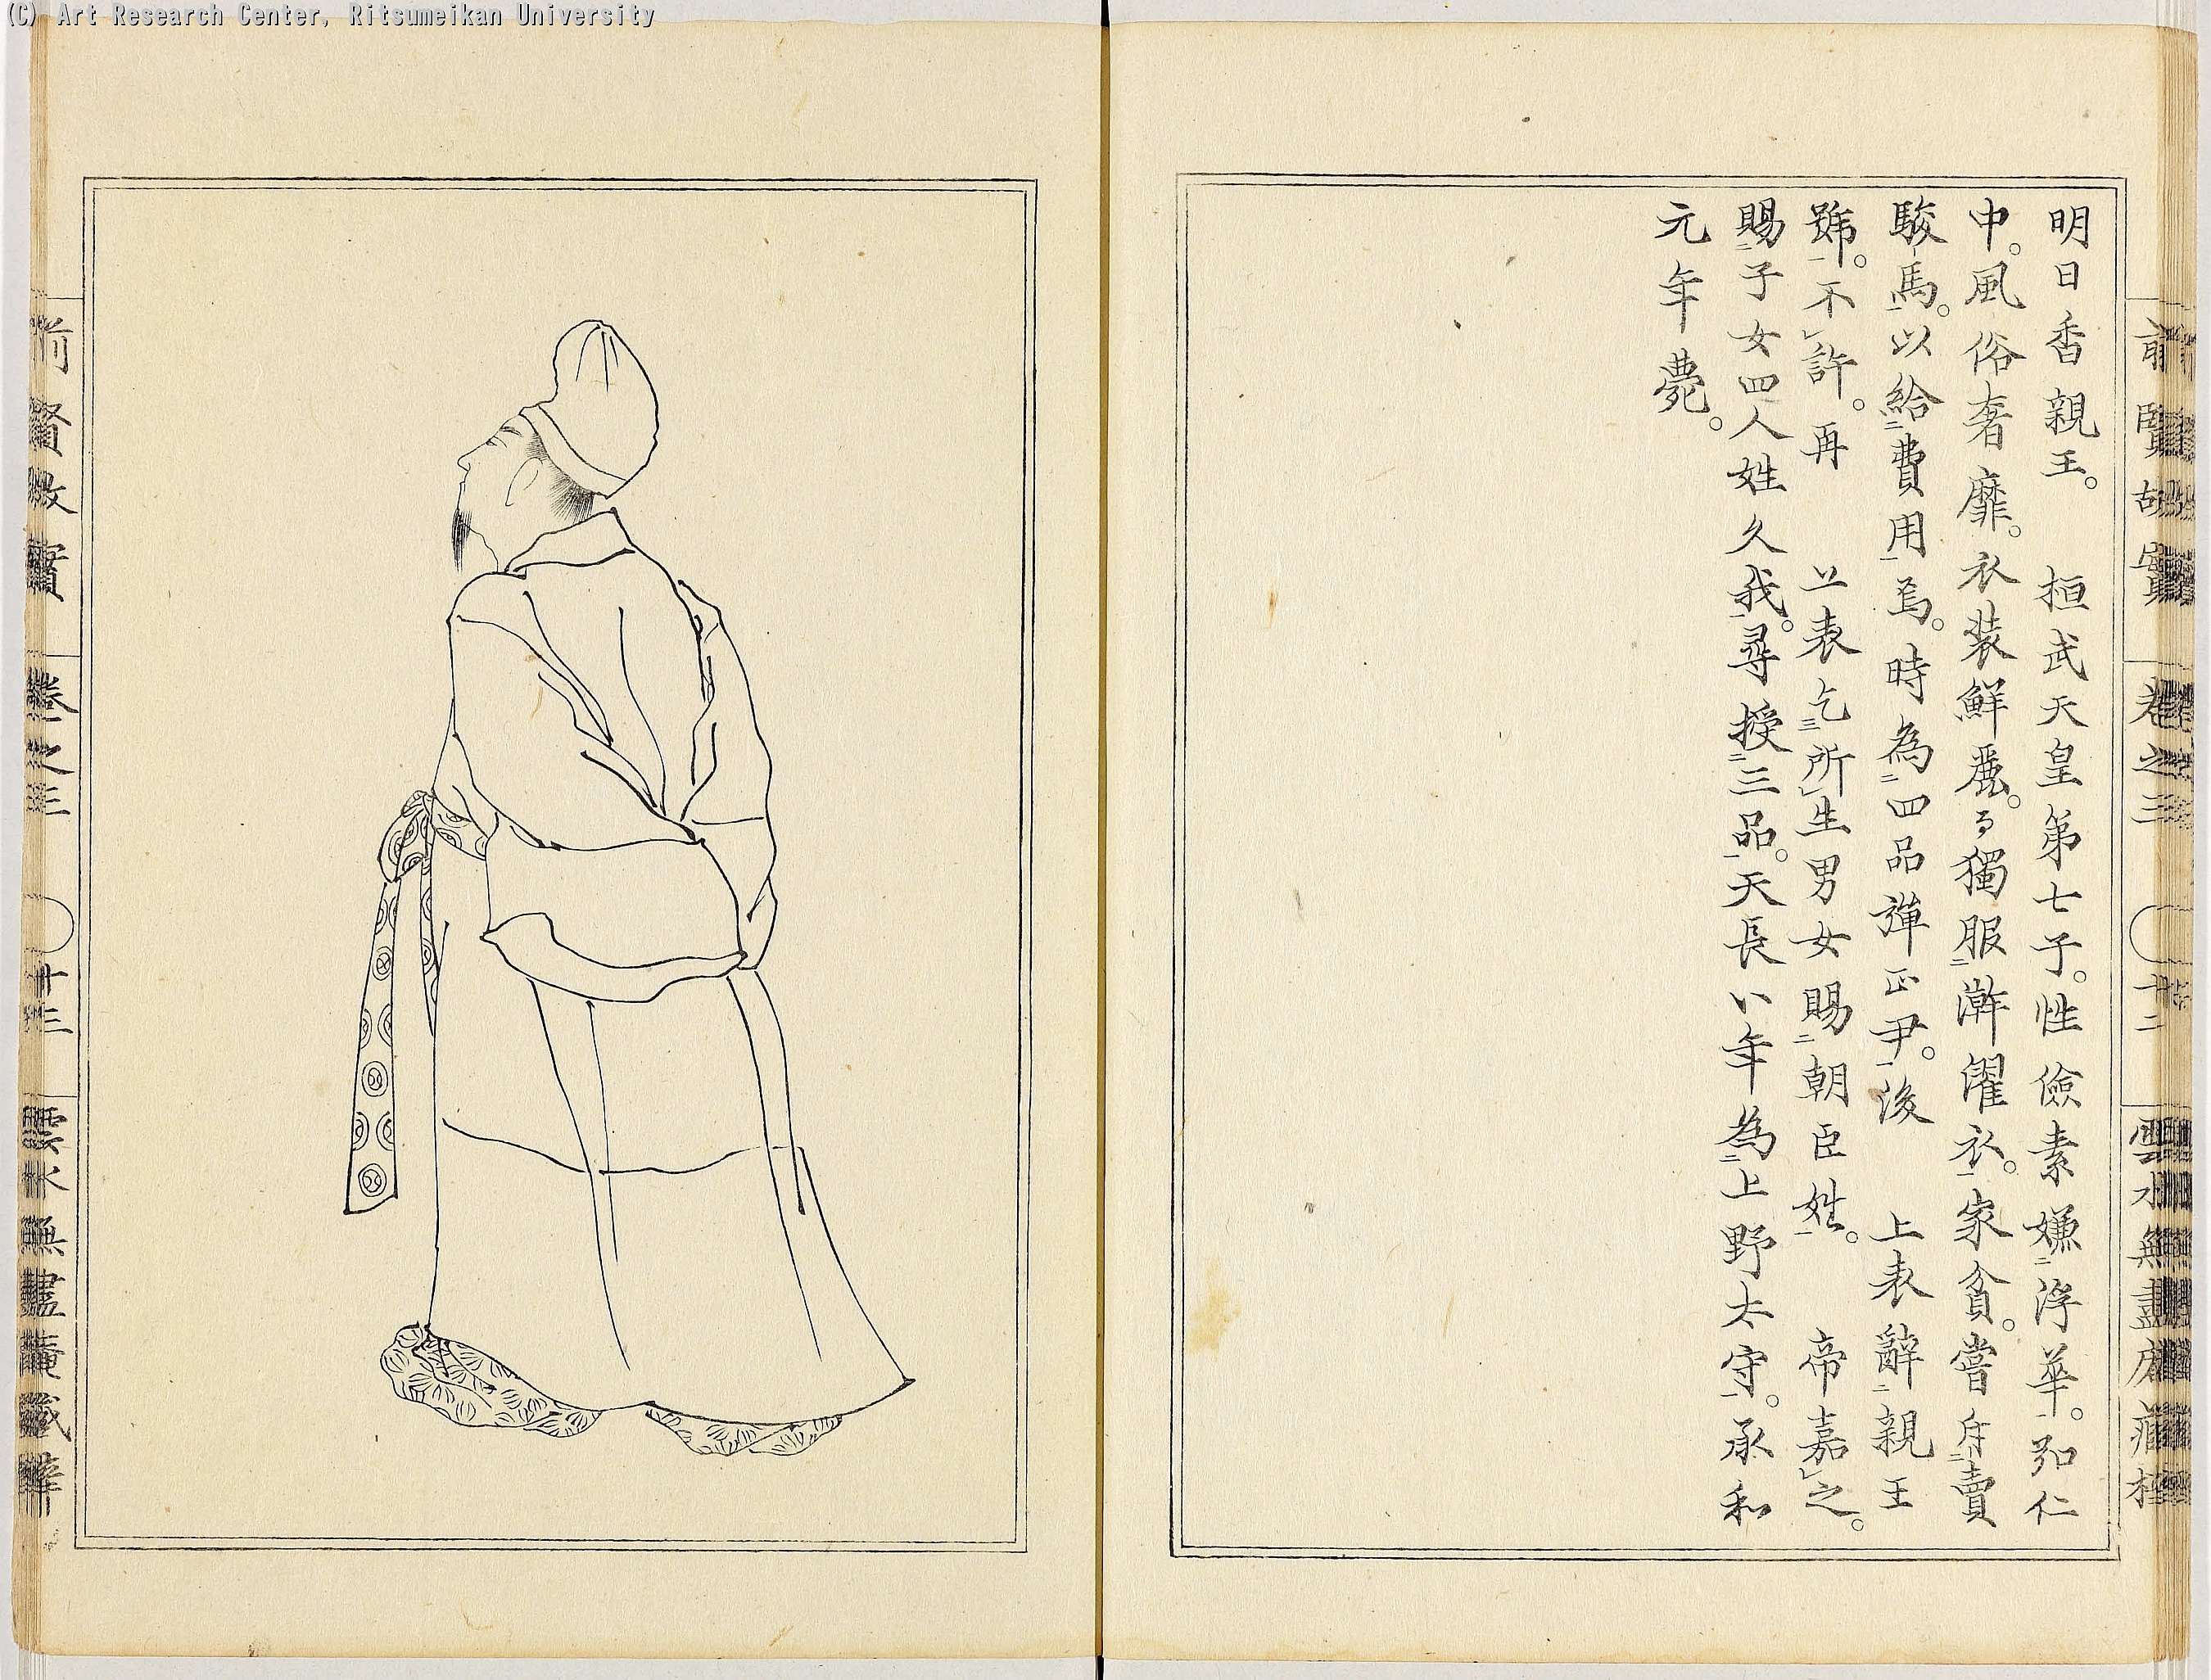 (C) Art Research Center, Ritsumeikan University
明日香親王。桓武天皇第七子。性儉素嫌浮華。弘仁
中。風俗奢靡。衣裝鮮麗。乃獨服澣濯衣。家貧。嘗斥賣
駿馬。以給費用焉。時為四品彈正尹。後上表辭親王
號。不許。再上表乞所生男女賜朝臣姓。帝嘉之。
賜子女四人姓久我。尋授三品。天長八年為上野太守。承和
元年薨。
前賢故實
卷之三
十二
雲水無盡
前賢故實
卷之三
十三
雲水無盡庵藏梓